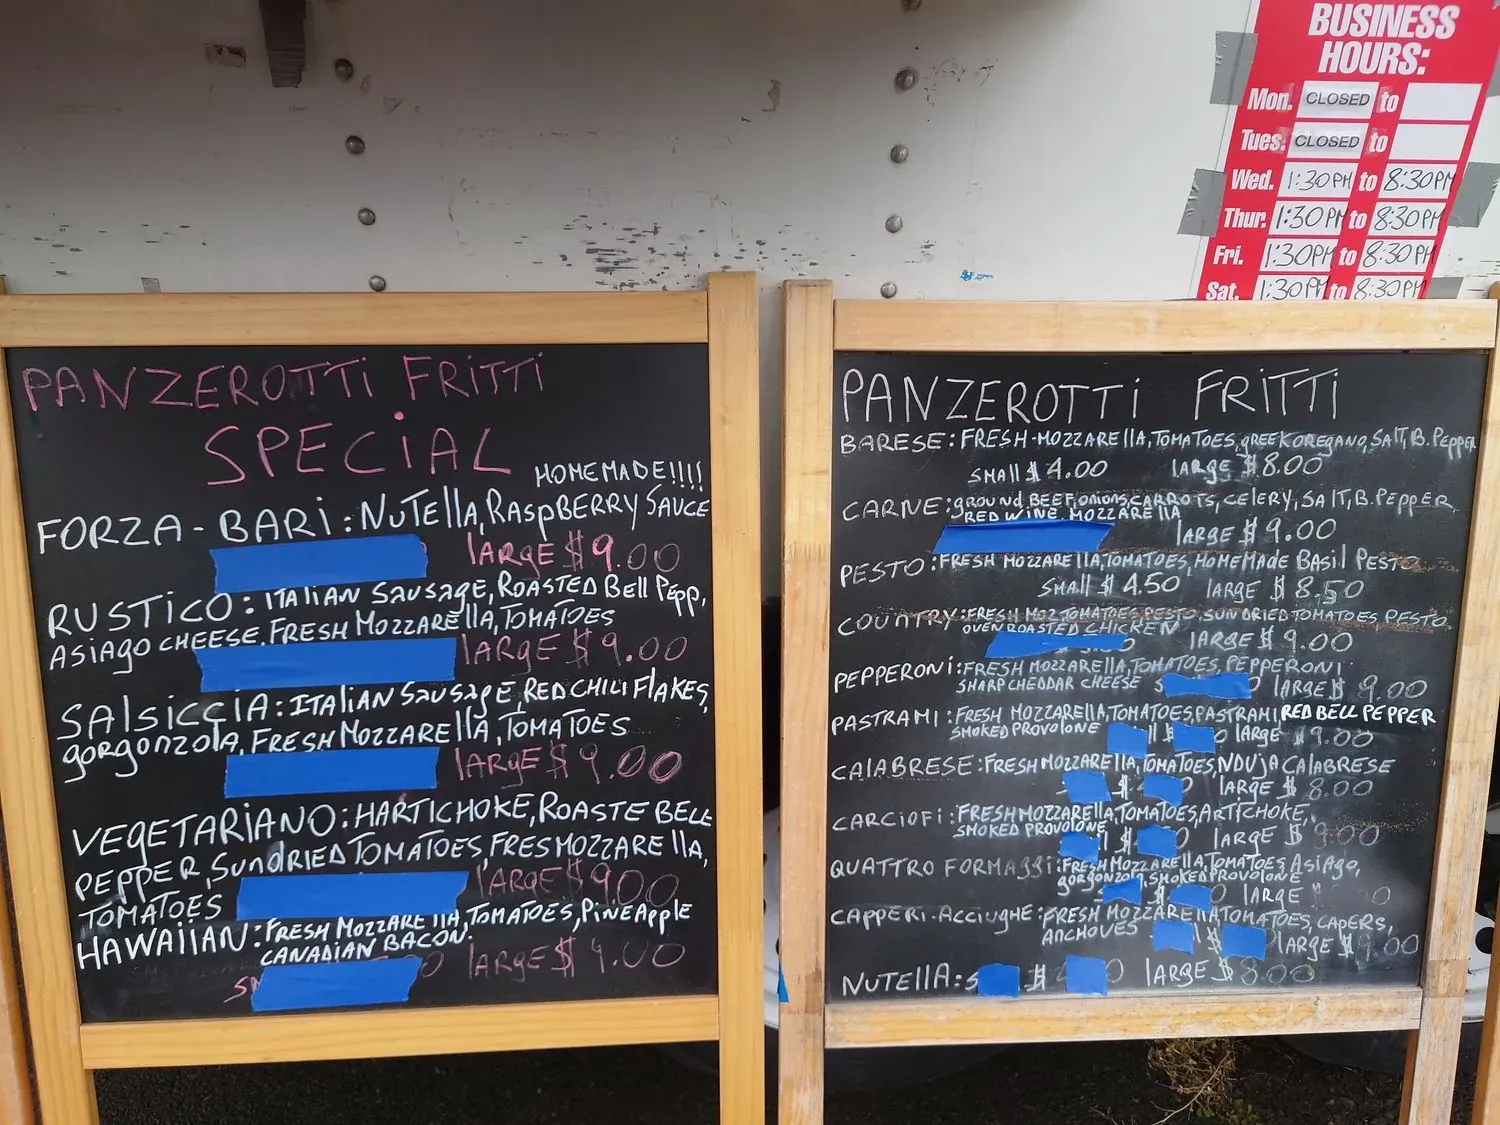 BUSINESS
HOURS:
Mon. CLOSED to
Tues. CLOSED to
Wed. 1:30PM to 8:30PM
Thur. 1:30PM to 8:30PM
Fri. 1:30PM to 8:30PM
Sat. 1:30PM to 8:30PM
PANZEROTTi FRiTTi
SPECiAL
HOMEMADE!!!!
FORZA-BARi: NUTEllA, RASPBERRY SAUCE
lARgE $9.00
RUSTiCO: ITAliAN SAUSAgE, ROASTED BEll PEPP,
ASiAgO CHEESE, FRESH MOZZAREllA, TOMATOES
lARgE $9.00
SAlSiCCiA: ITAliAN SAUSAgE, RED CHILI FlAKES,
gORgONZOlA, FRESH MOZZAREllA, TOMATOES
lARgE $9.00
VEgETARiANO: HARTICHOKE, ROASTE BELL
PEPPER, SUNDRIED TOMATOES, FRESMOZZAREllA,
TOMATOES lARgE $9.00
HAWAiiAN: FRESH MOZZAREllA, TOMATOES, PiNEAPPlE
CANADIAN BACON
lARgE $9.00
PANZEROTTi FRiTTi
BARESE: FRESH-MOZZAREllA, TOMATOES, gREEK OREgANO, SAlT, B. PEPPER
SMAll $4.00 lARgE $8.00
CARNE: gROUND BEEF, ONIONS, CARROTS, CElERY, SAlT, B. PEPPER,
RED WINE MOZZAREllA
lARgE $9.00
PESTO: FRESH MOZZAREllA, TOMATOES, HOMEMADE BASil PESTO
SMAll $4.50 lARgE $8.50
COUNTRY: FRESH MOZ TOMATOES PESTO, SUNDRIED TOMATOES PESTO
OVEN ROASTED CHICKEN lARgE $9.00
PEPPERONi: FRESH MOZZAREllA, TOMATOES, PEPPERONI
SHARP CHEDDAR CHEESE lARgE $9.00
PASTRAMi: FRESH MOZZAREllA, TOMATOES, PASTRAMI, RED BELL PEPPER
SMOKED PROVOlONE ll $ lARgE $9.00
CAlABRESE: FRESH MOZZAREllA, TOMATOES, NDUJA CAlABRESE
$ lARgE $8.00
CARCiOFi: FRESH MOZZAREllA, TOMATOES, ARTICHOKE,
SMOKED PROVOlONE $ lARgE $9.00
QUATTRO FORMAggi: FRESH MOZZAREllA, TOMATOES ASiAgO,
gORgONZOlA, SMOKED PROVOlONE
lARgE
CAPPERi-ACCiUgHE: FRESH MOZZAREllA TOMATOES, CAPERS,
ANCHOVES $ lARgE $9.00
NUTEllA: S $ lARgE $8.00